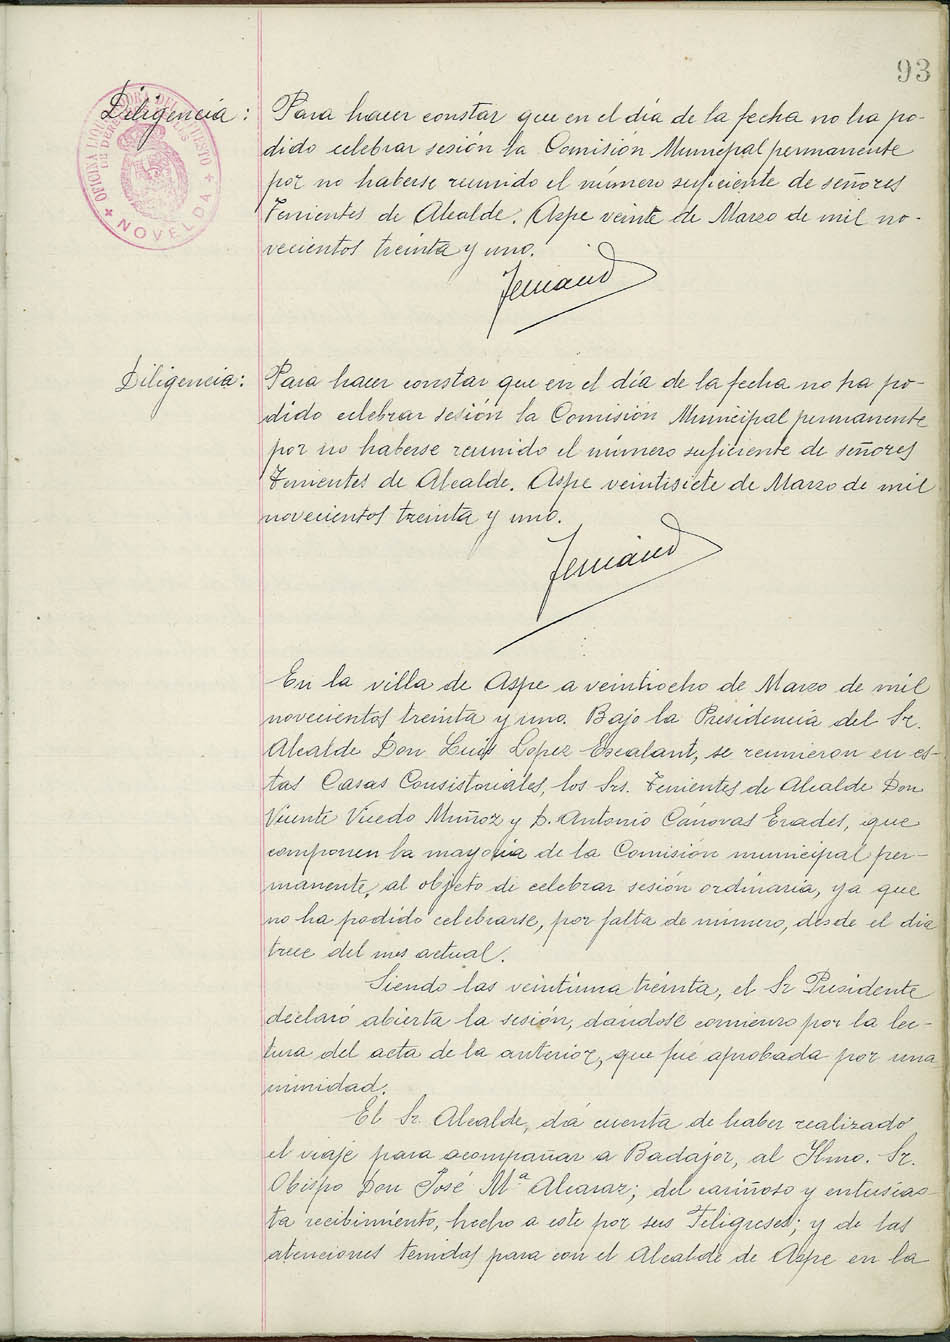 93
Diligencia: Para hacer constar que en el día de la fecha no ha po-
dido celebrar sesión la Comisión Municipal permanente
por no haberse reunido el número suficiente de señores
Tenientes de Alcalde. Aspe veinte de Marzo de mil no-
vecientos treinta y uno.
OFICINA LIQUIDADORA DEL IMPUESTO
DE DERECHOS REALES
NOVELDA
Diligencia: Para hacer constar que en el día de la fecha no ha po-
dido celebrar sesión la Comisión Municipal permanente
por no haberse reunido el número suficiente de señores
Tenientes de Alcalde. Aspe veintisiete de Marzo de mil
novecientos treinta y uno.
En la villa de Aspe a veintiocho de Marzo de mil
novecientos treinta y uno. Bajo la Presidencia del Sr.
Alcalde Don Luis Lopez Escalant, se reunieron en es-
tas Casas Consistoriales, los Srs. Tenientes de Alcalde Don
Vicente Vicedo Muñoz y D. Antonio Cánovas Erades, que
componen la mayoria de la Comisión municipal per-
manente, al objeto de celebrar sesión ordinaria, ya que
no ha podido celebrarse, por falta de número, desde el dia
trece del mes actual.
Siendo las veintiuna treinta, el Sr Presidente
declaró abierta la sesión, dandose comienzo por la lec-
tura del acta de la anterior, que fué aprobada por una
nimidad.
El Sr. Alcalde, dá cuenta de haber realizado
el viaje para acompañar a Badajoz, al Ilmo. Sr.
Obispo Don José Mª Alcaraz; del cariñoso y entusias-
ta recibimiento, hecho a este por sus Feligreses; y de las
atenciones tenidas para con el Alcalde de Aspe en la